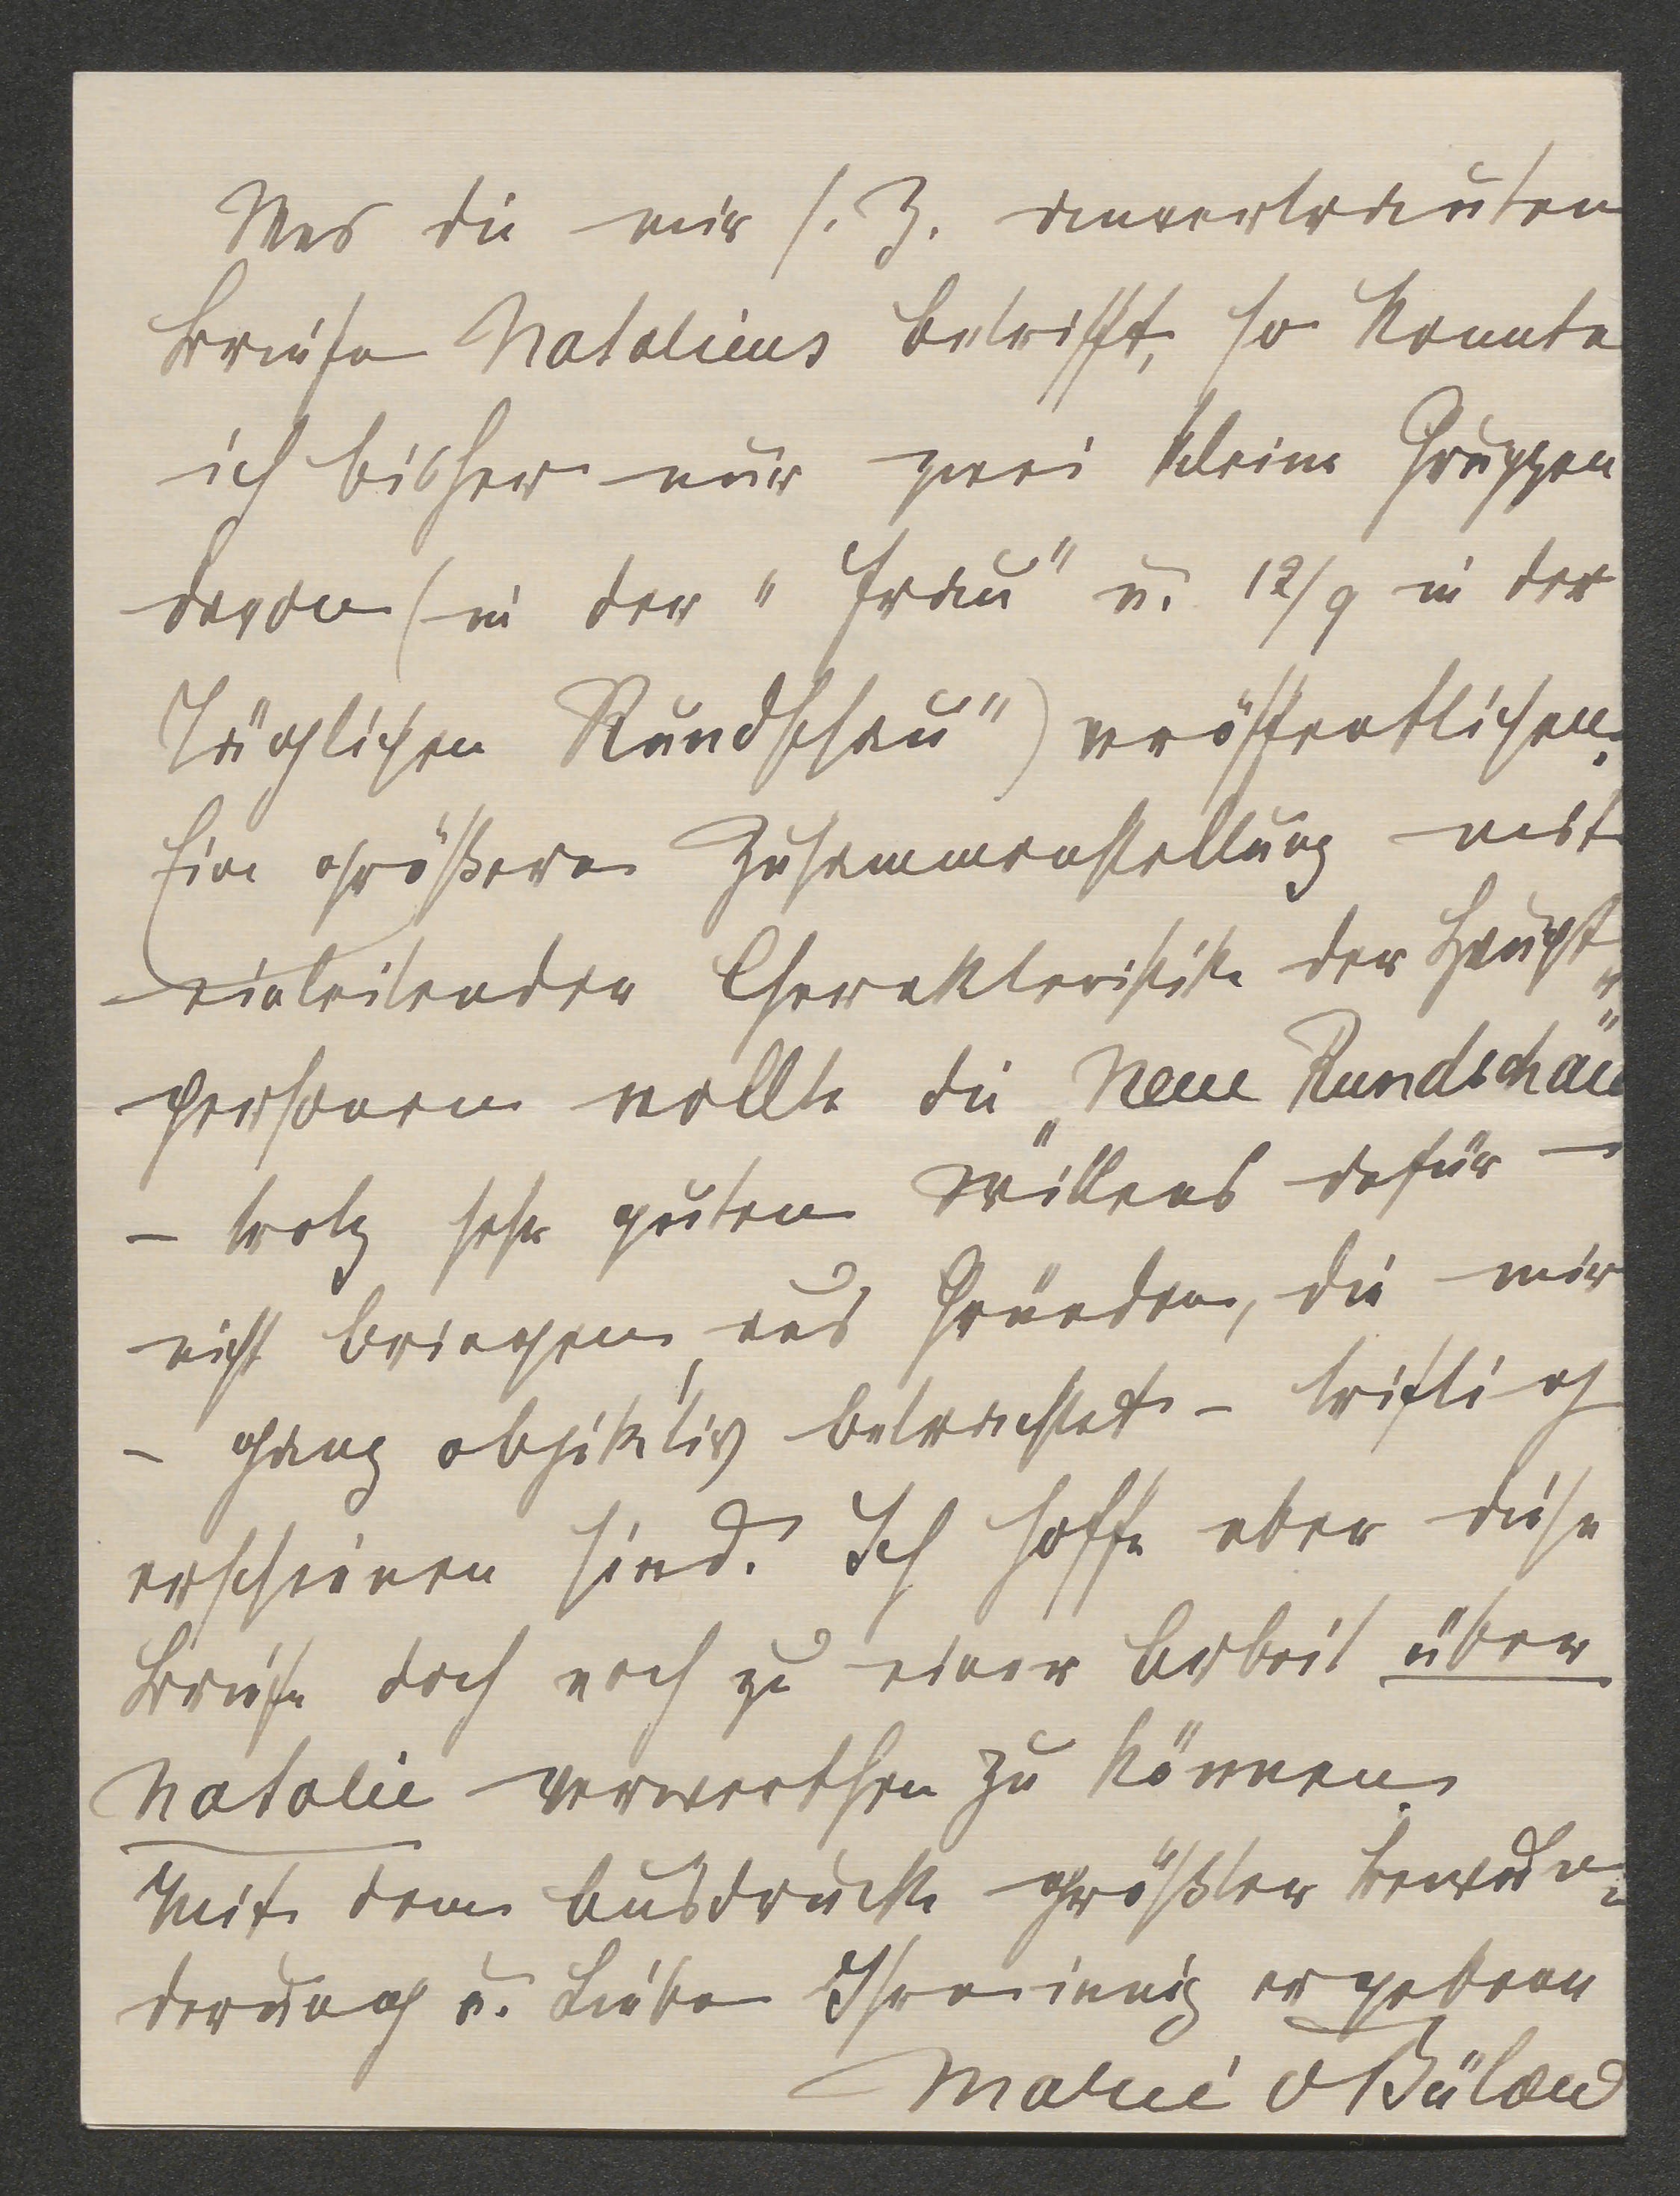 Was die mir s. Z. anvertrauten
Briefe Nataliens betrifft, so konnte
ich bisher nur zwei kleine Gruppen
davon (in der "Frau" u. 12/9 in der
Täglichen Rundschau") veröffentlichen.
Eine größere Zusammenstellung mit
einleitender Charakteristik der Haupt„
personen wollte die „Neue Rundschau"
– trotz sehr guten Willens dafür –
nicht bringen, aus Gründen, die mir
– ganz objektiv betrachtet – triftig
erschienen sind. Ich hoffe aber diese
Briefe doch noch zu einer Arbeit über
Natalie verwerthen zu können.
Mit dem Ausdrucke größter Bewun„
derung u. Liebe Ihre innig ergebene
Marie v Bülow